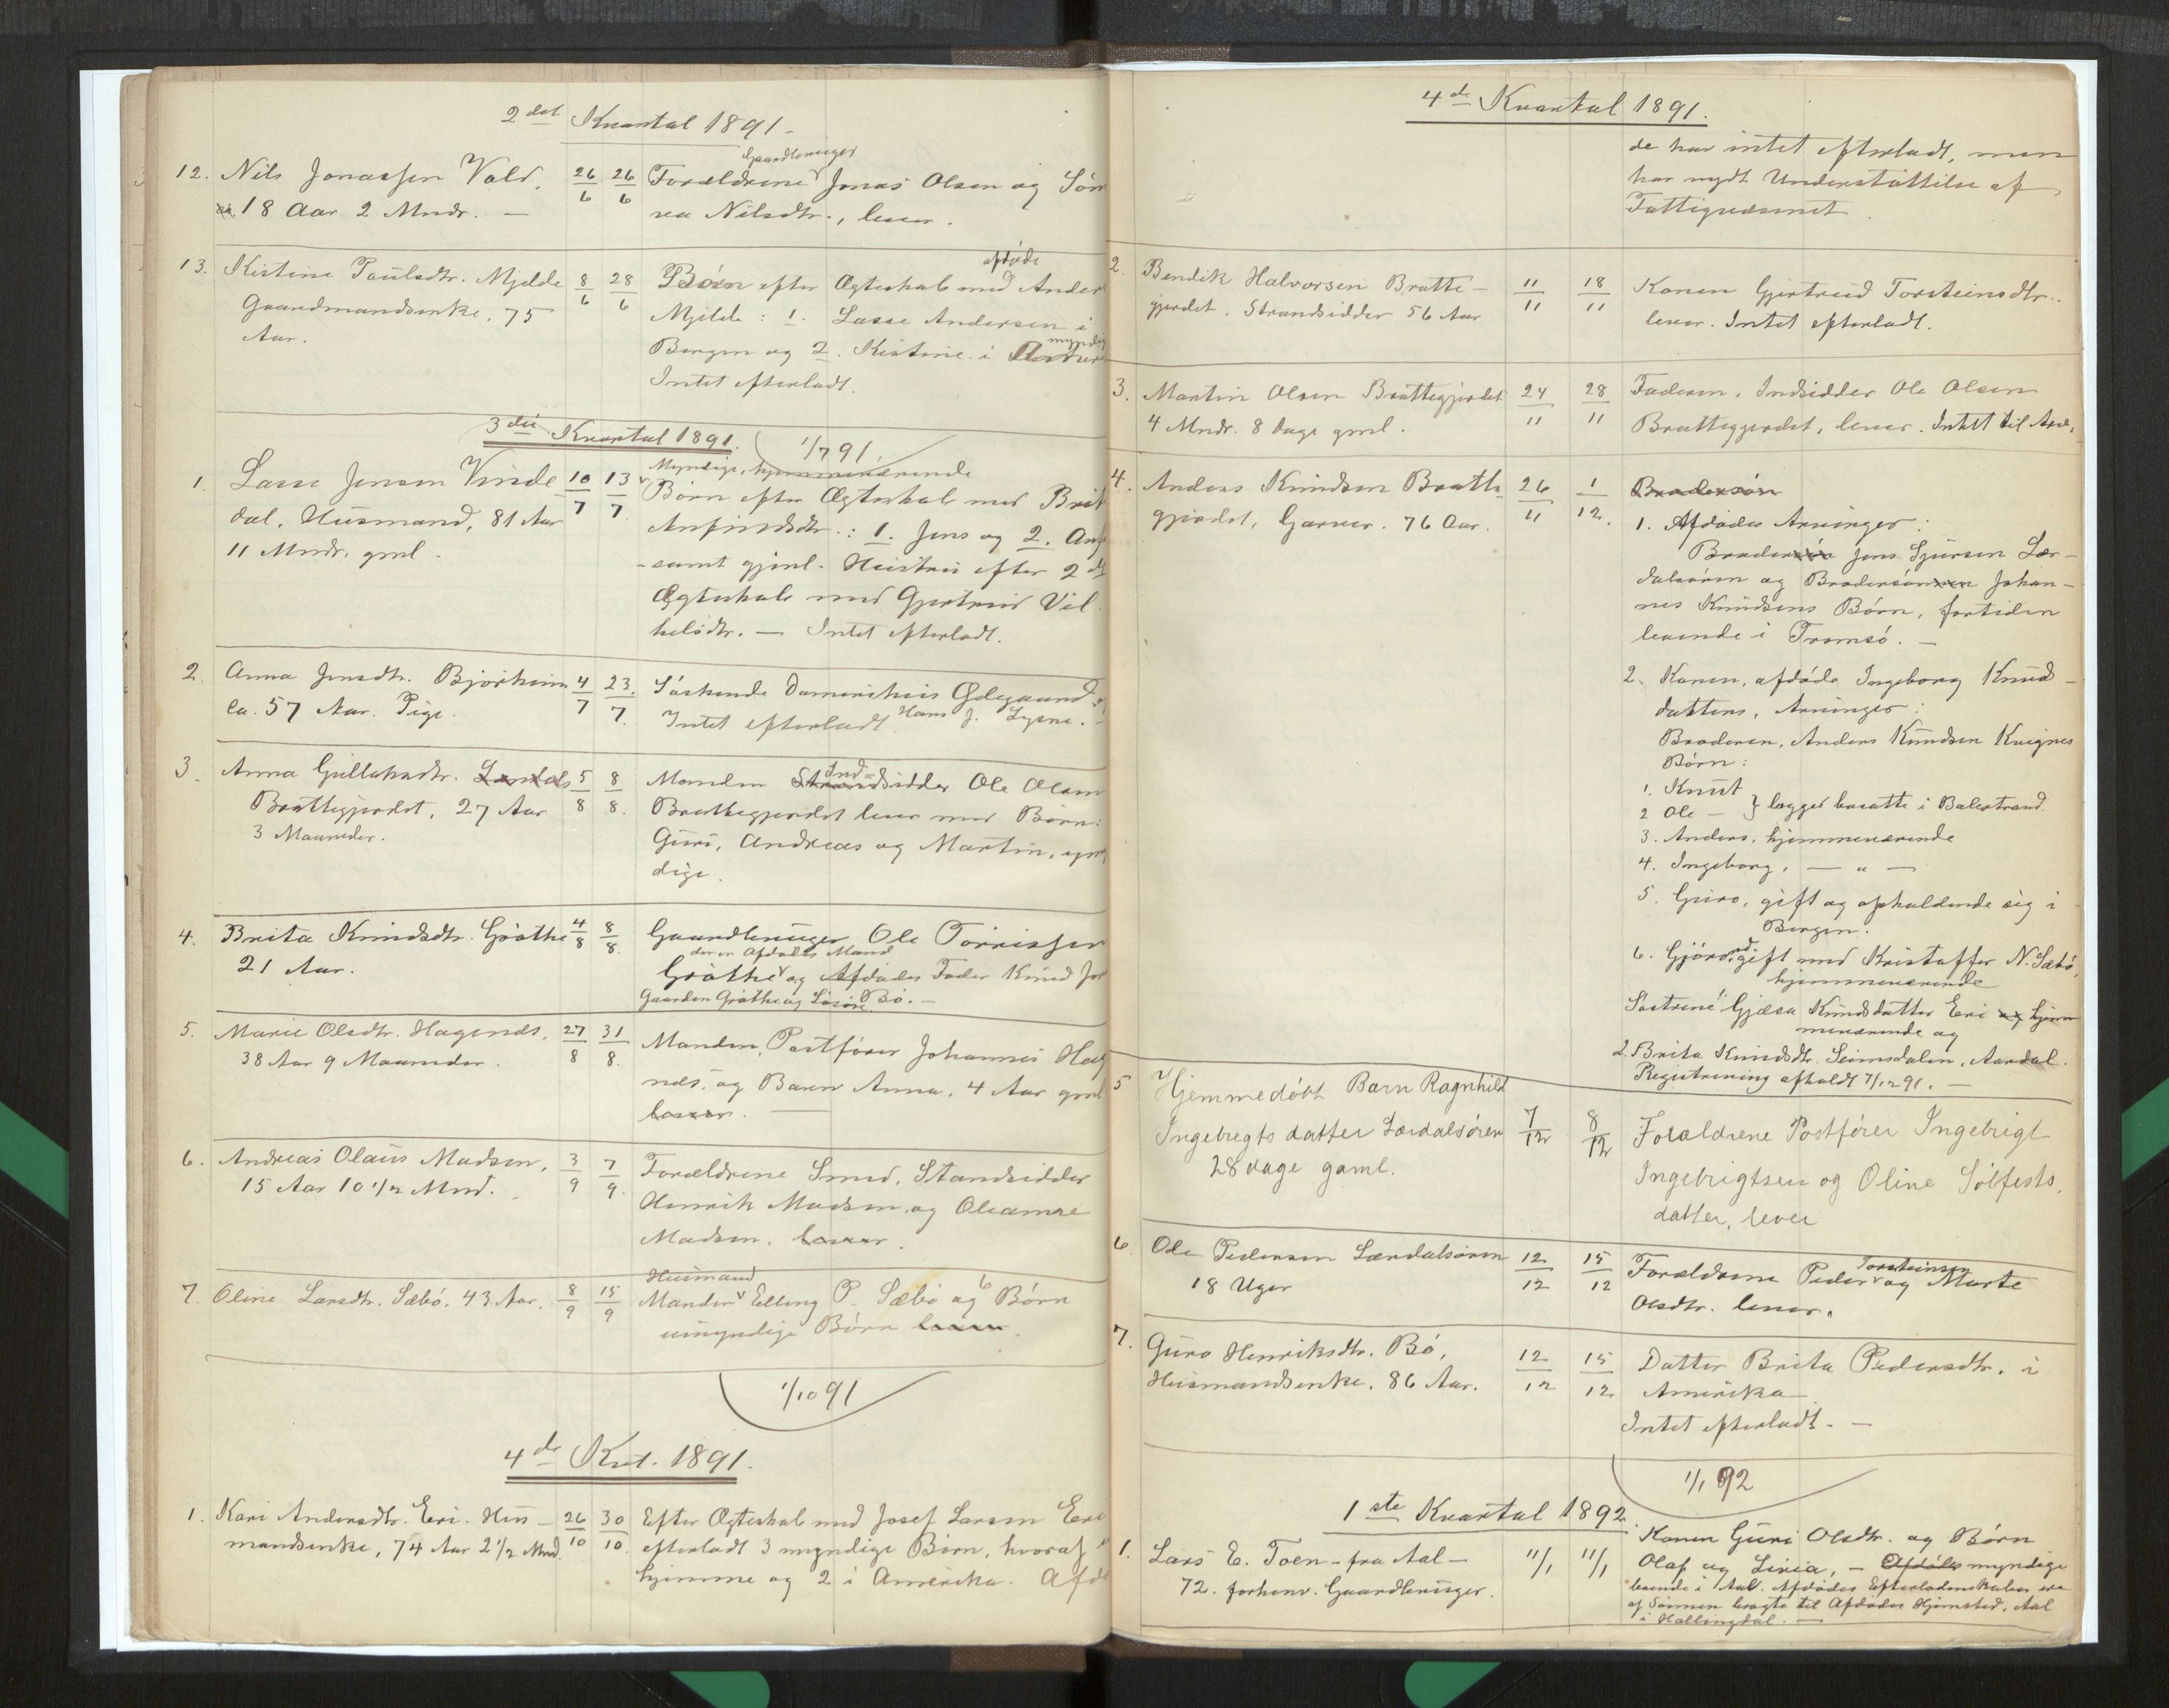 2det Kvartal 1891 -
12. Nils Jonassen Vold, 26/6 26/6 Forældrene Gaardbruger Jonas Olsen og Sön
ca. 18 Aar 2 Mndr. — nea Nilsdtr., lever.
13. Kistine Paulsdtr. Mjelde 8/6 28/6 Børn efter Ægteskab med afdøde Ander
Gaardmandsenke, 75 Mjelde: 1. Lasse Andersen i
Aar. Bergen og 2. Kistine i myndig
Intet efterladt.
3die Kvartal 1891. 1/7 91.
Myndige, hjemmeværende
1. Lasse Jensen Vinde 10/7 13/7 Børn efter Ægteskab med Brit
dal, Husmand, 81 Aar Anfindsdtr.: 1. Jens og 2. Anf
11 Mndr. gml. - samt gjenl. Hustru efter 2det
Ægteskab med Gjertrud Vil
helsdtr. — Intet efterladt.
2. Anna Jensdtr. Bjørkum 4/7 23/7. Söskende
ca. 57 Aar. Pige. Intet efterladt Hans J. Lysne. -
3. Anna Gullaksdtr. 5/8 8/8. Manden Indsidder Ole Olsen
Brattegjerdet, 27 Aar Brattegjerdet lever med Børn:
3 Maaneder. Guri, Andreas og Martin, umyn
dige.
4. Brita Knudsdtr. Gröthe 4/8 8/8. Gaardbruger Ole Torrissen
21 Aar. der er Afdødes Mand
Gröthe og Afdødes Fader Knud
Gaarden Gröthe og Bö. —
5. Marie Olsdtr. Hagenæs, 27/8 31/8. Manden, Postfører Johannes Hag
38 Aar 9 Maaneder. næs, og Barn Anna, 4 Aar gml
lever. —
6. Andreas Olaus Madsen, 3/9 7/9. Forældrene Smed, Strandsidder
15 Aar 10 1/2 Mnd. Henrik Madsen og Oleanne
Madsen, lever.
7. Oline Larsdtr. Sæbö. 43 Aar. 8/9 15/9 Manden Husmand Elling P. Sæbö og 6 Børn
umyndige Børn lever.
1/10 91
4de Kvt. 1891.
1. Kari Andersdtr. Eri. Hus- 26/10 30/10. Efter Ægteskab med Josef Larsen Eri
mandsenke, 74 Aar 2 1/2 Mnd. efterladt 3 myndige Børn, hvoraf
hjemme og 2 i Amerika. Afdø
4de Kvartal 1891.
de har intet efterladt, men
har nydt Understøttelse af
Fattigvæsenet.
2. Bendik Halvorsen Bratte- 11/11 18/11 Konen Gjertrud Torsteinsdtr.
gjerdet. Strandsidder 56 Aar lever. Intet efterladt.
3. Martin Olsen Brattegjerdet 24/11 28/11 Faderen, Indsidder Ole Olsen
4 Mndr. 8 dage gml. Brattegjerdet, lever. Intet til Arv.
4. Anders Knudsen Bratte 26/11 1/12. Brodersøn
gjerdet, Garver. 76 Aar. 1. Afdødes Arvinger:
Broder Jens Sjursen Lær-
dalsören og Brodersønnen Johan-
nes Knudsens Börn, fortiden
levende i Tromsö. —
2. Konen, afdøde Ingeborg Knuds-
datters, Arvinger:
Broderen, Anders Knudsen Kvignes
Börn:
1. Knut
2 Ole — } begge bosatte i Balestrand.
3. Anders, hjemmeværende
4. Ingeborg, — " —
5. Guro, gift og opholdende sig i
Bergen.
6. Gjöro, gift med Kristoffer N. Sæbö,
hjemmeværende
Söstrene 1. Gjæsa Knudsdatter Eri og hjem
meværende og
2. Brita Knudsdtr. Seimsdalen, Aardal.
Registrering afholdt 7/12 91. —
5 Hjemmedøbt Barn Ragnhild 7/12 8/12 Forældrene Postfører Ingebrigt
Ingebrigtsdatter Lærdalsøren Ingebrigtsen og Oline Sølfests.
28 dage gaml. datter, lever
6. Ole Pedersen Lærdalsören 12/12 15/12 Forældrene Peder Torsteinsen og Marte
18 Uger Olsdtr. lever.
7. Guro Henriksdtr. Bö, 12/12 15/12 Datter Brita Pedersdtr. i
Husmandsenke, 86 Aar. Amerika
Intet efterladt. —
1/1 92
1ste Kvartal 1892.
1. Lars E. Toen - fra Aal - 11/1 11/1 Konen Guri Olsdtr. og Børn
72. forhenv. Gaardbruger. Olaf og Livia, - Afdødes myndige
levende i Aal. Afdødes Efterladenskaber ere
af Sönnen bragte til Afdødes Hjemsted, Aal
i Hallingdal. —